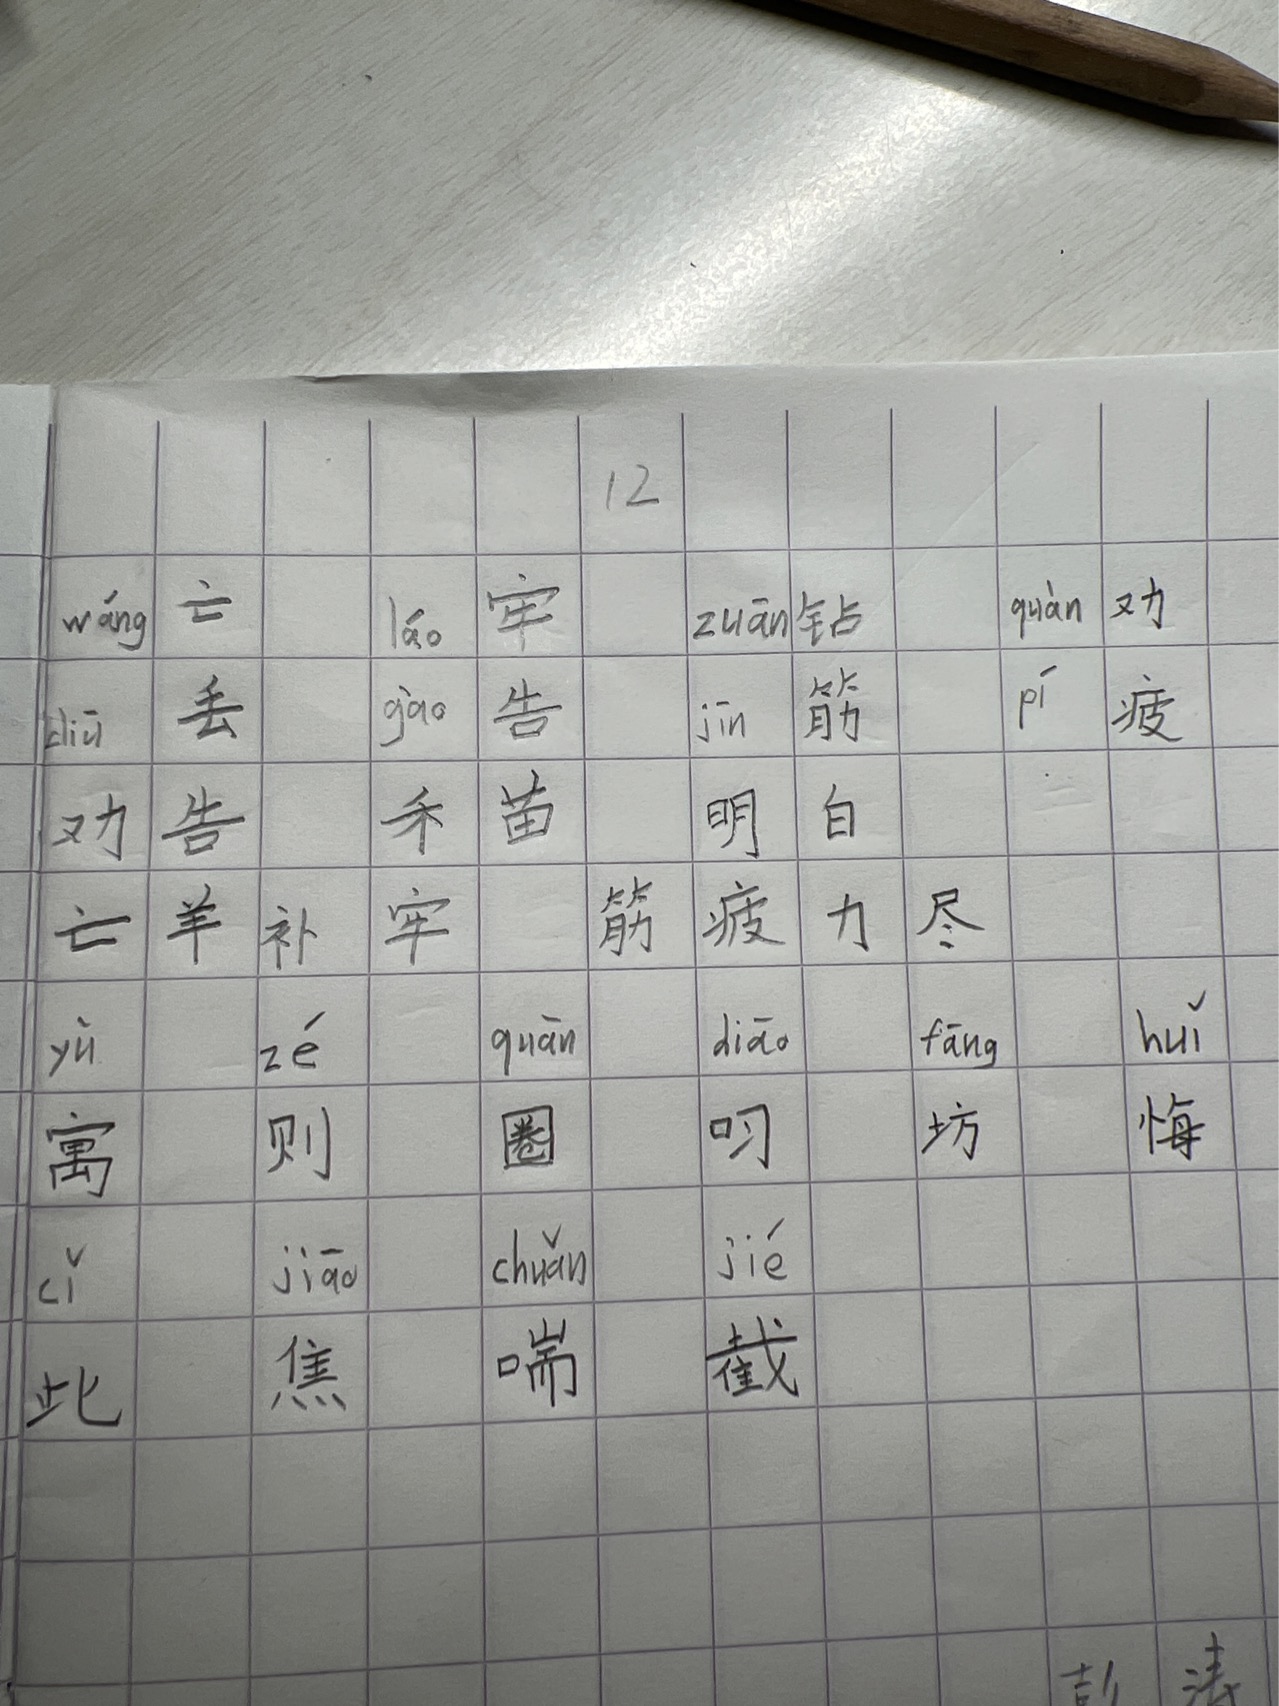 12
wáng 亡 láo 牢 zuān 钻 quàn 劝
diū 丢 gào 告 jīn 筋 pí 疲
劝告 禾苗 明白
亡羊补牢 筋疲力尽
yù zé quān diāo fāng huǐ
寓 则 圈 叼 坊 悔
cǐ jiāo chuǎn jié
此 焦 喘 截
彭 涛